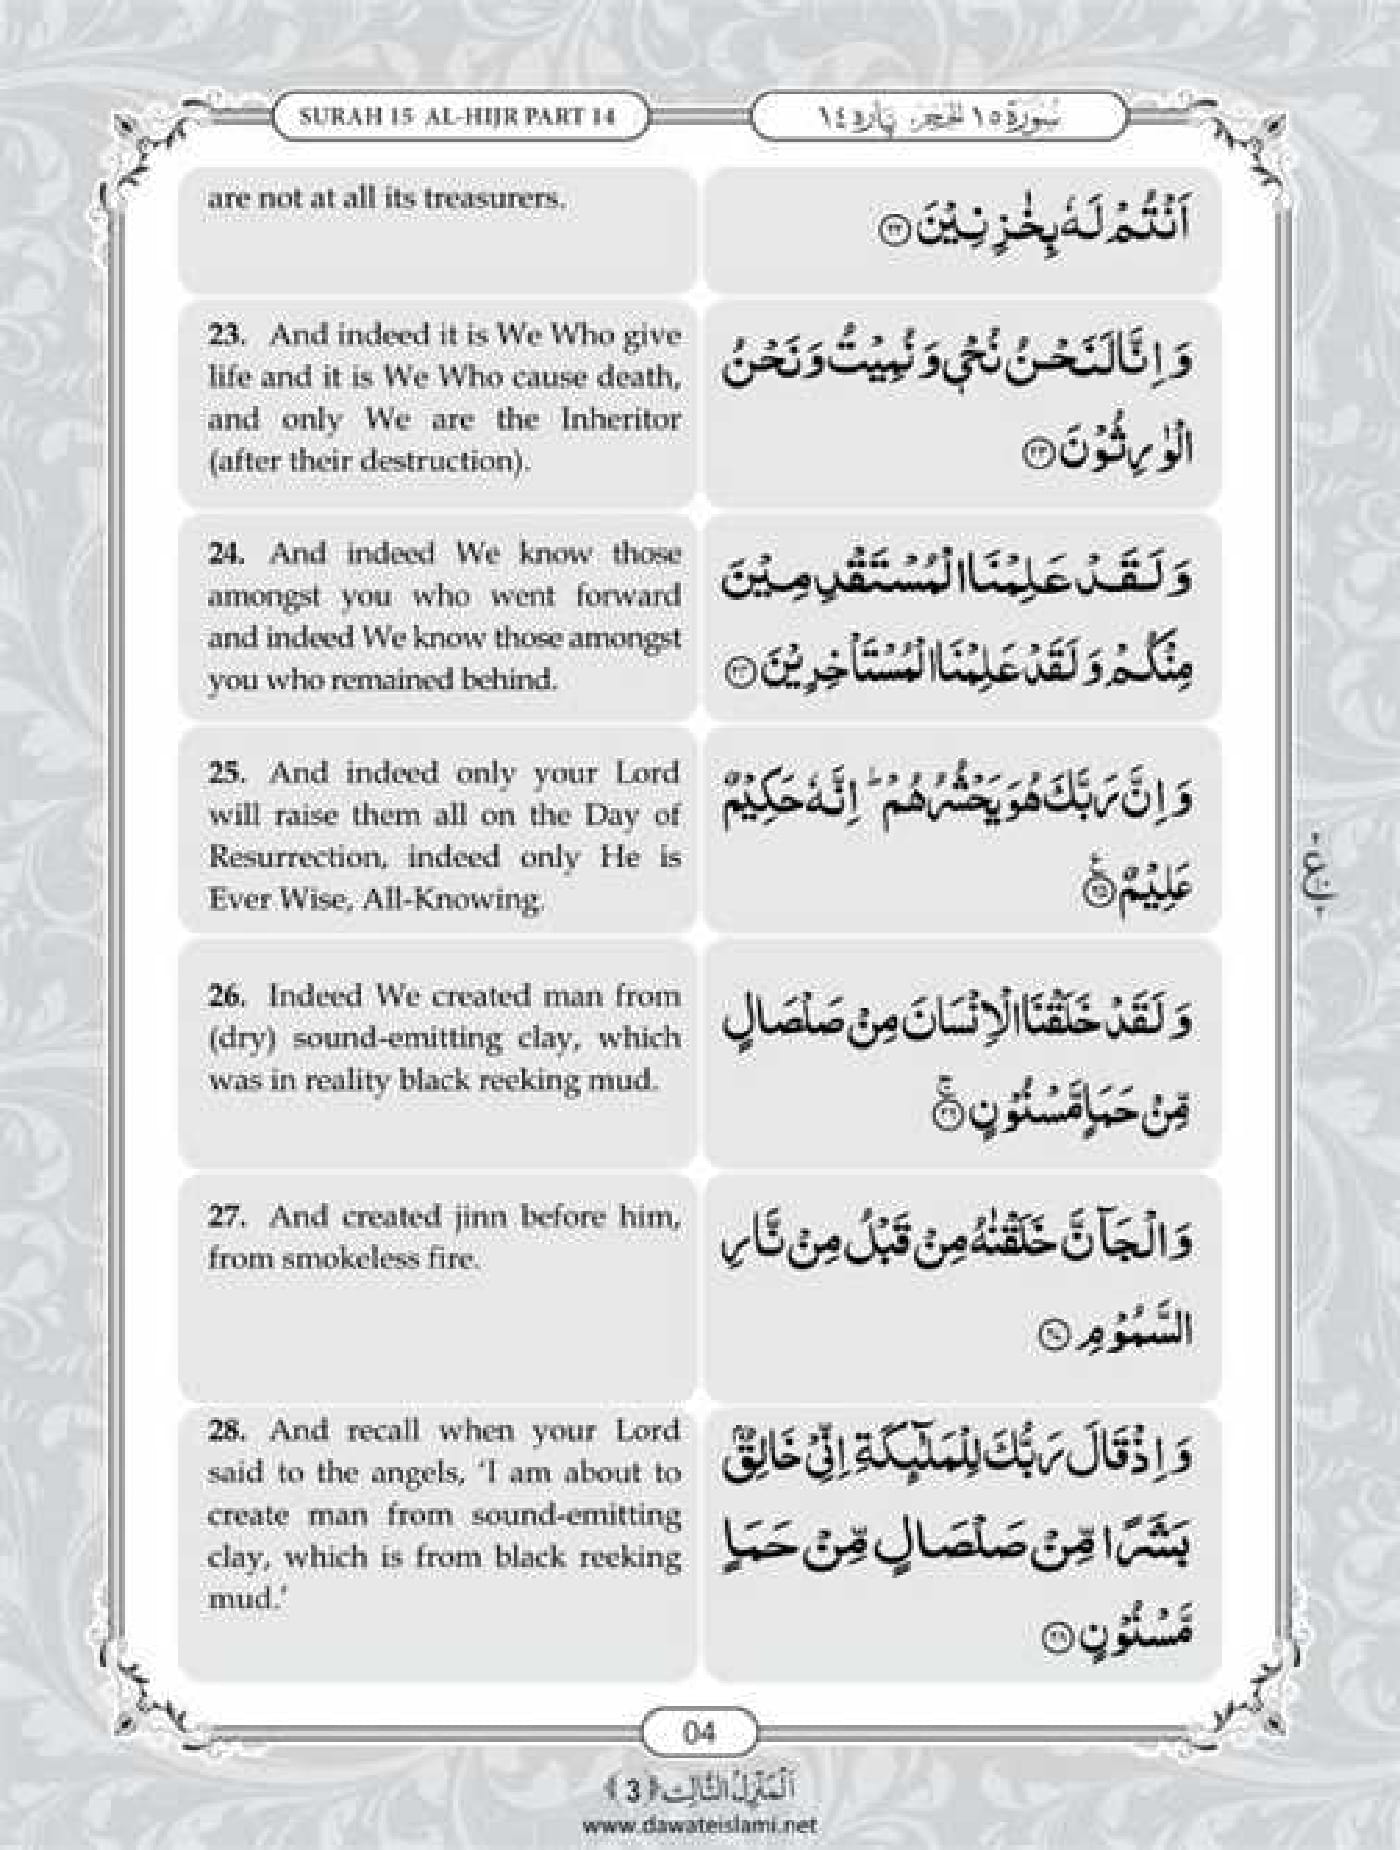 SURAH 15 AL-HIJR PART 14
سُوْرَۃ ١٥ اَلْحِجْر، پارہ ١٤
are not at all its treasurers.
اَنْتُمْ لَهٗ بِخٰزِنِیْنَ ﴿۲۲﴾
23. And indeed it is We Who give
life and it is We Who cause death,
and only We are the Inheritor
(after their destruction).
وَ اِنَّا لَنَحْنُ نُحْیٖ وَ نُمِیْتُ وَ نَحْنُ
الْوٰرِثُوْنَ ﴿۲۳﴾
24. And indeed We know those
amongst you who went forward
and indeed We know those amongst
you who remained behind.
وَ لَقَدْ عَلِمْنَا الْمُسْتَقْدِمِیْنَ
مِنْكُمْ وَ لَقَدْ عَلِمْنَا الْمُسْتَاْخِرِیْنَ ﴿۲۴﴾
25. And indeed only your Lord
will raise them all on the Day of
Resurrection, indeed only He is
Ever Wise, All-Knowing.
وَ اِنَّ رَبَّكَ هُوَ یَحْشُرُهُمْ ؕ اِنَّهٗ حَكِیْمٌ
عَلِیْمٌ ﴿۲۵﴾
26. Indeed We created man from
(dry) sound-emitting clay, which
was in reality black reeking mud.
وَ لَقَدْ خَلَقْنَا الْاِنْسَانَ مِنْ صَلْصَالٍ
مِّنْ حَمَاٍ مَّسْنُوْنٍ ﴿۲۶﴾
27. And created jinn before him,
from smokeless fire.
وَ الْجَآنَّ خَلَقْنٰهُ مِنْ قَبْلُ مِنْ نَّارِ
السَّمُوْمِ ﴿۲۷﴾
28. And recall when your Lord
said to the angels, ‘I am about to
create man from sound-emitting
clay, which is from black reeking
mud.’
وَ اِذْ قَالَ رَبُّكَ لِلْمَلٰٓىِٕكَةِ اِنِّیْ خَالِقٌۢ
بَشَرًا مِّنْ صَلْصَالٍ مِّنْ حَمَاٍ
مَّسْنُوْنٍ ﴿۲۸﴾
04
اَلْمَنْزِلُ الثَّالِث ﴿3﴾
www.dawateislami.net